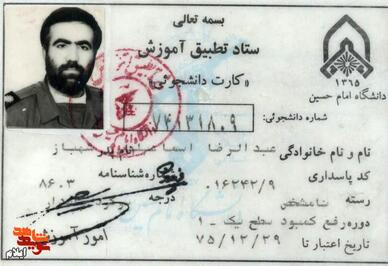 بسمه تعالی
ستاد تطبیق آموزش
«کارت دانشجوئی»
۱۳۶۵
دانشگاه امام حسین
شماره دانشجوئی:
۷۴۱۳۱۸۰۹
نام و نام خانوادگی عبدالرضا
کد پاسداری ۰۱۶۲۴۲/۹ شماره شناسنامه ۸۶۰۳
رسته نامشخص درجه
دوره رفع کمبود سطح یک - ۱
تاریخ اعتبار تا ۷۵/۱۲/۲۹
امور آموزش